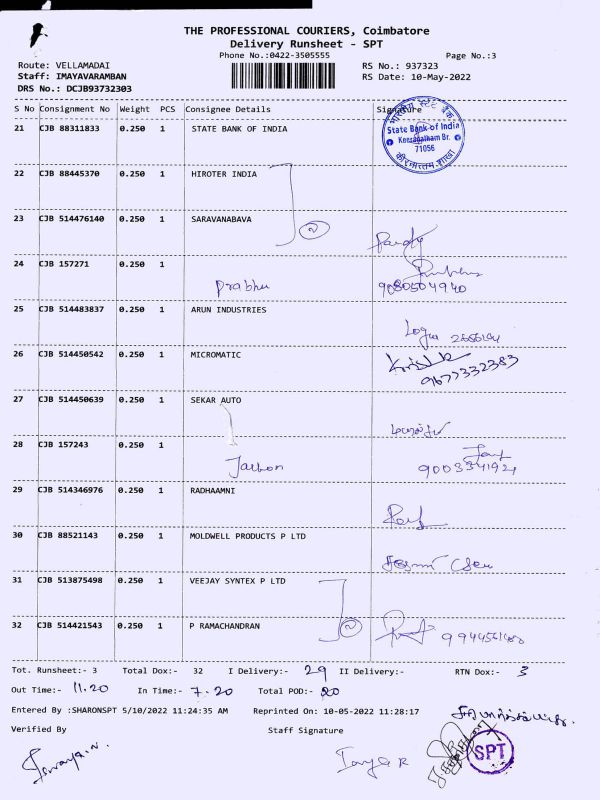 THE PROFESSIONAL COURIERS, Coimbatore
Delivery Runsheet - SPT
Phone No.:0422-3505555
Page No.:3
Route: VELLAMADAI
Staff: IMAYAVARAMBAN
DRS No.: DCJB93732303
RS No.: 937323
RS Date: 10-May-2022
S No Consignment No Weight PCS Consignee Details Signature
21 CJB 88311833 0.250 1 STATE BANK OF INDIA
भारतीय स्टेट बैंक
State Bank of India
71056
22 CJB 88445370 0.250 1 HIROTER INDIA
23 CJB 514476140 0.250 1 SARAVANABAVA
24 CJB 157271 0.250 1
Prabhu
9080504940
25 CJB 514483837 0.250 1 ARUN INDUSTRIES
26 CJB 514450542 0.250 1 MICROMATIC
9677332383
27 CJB 514450639 0.250 1 SEKAR AUTO
28 CJB 157243 0.250 1
9003341921
29 CJB 514346976 0.250 1 RADHAAMNI
30 CJB 88521143 0.250 1 MOLDWELL PRODUCTS P LTD
31 CJB 513875498 0.250 1 VEEJAY SYNTEX P LTD
32 CJB 514421543 0.250 1 P RAMACHANDRAN
Tot. Runsheet:- 3 Total Dox:- 32 I Delivery:- 29 II Delivery:- RTN Dox:- 3
Out Time:- 11.20 In Time:- 7.20 Total POD:- 20
Entered By :SHARONSPT 5/10/2022 11:24:35 AM Reprinted On: 10-05-2022 11:28:17
Verified By Staff Signature
SPT